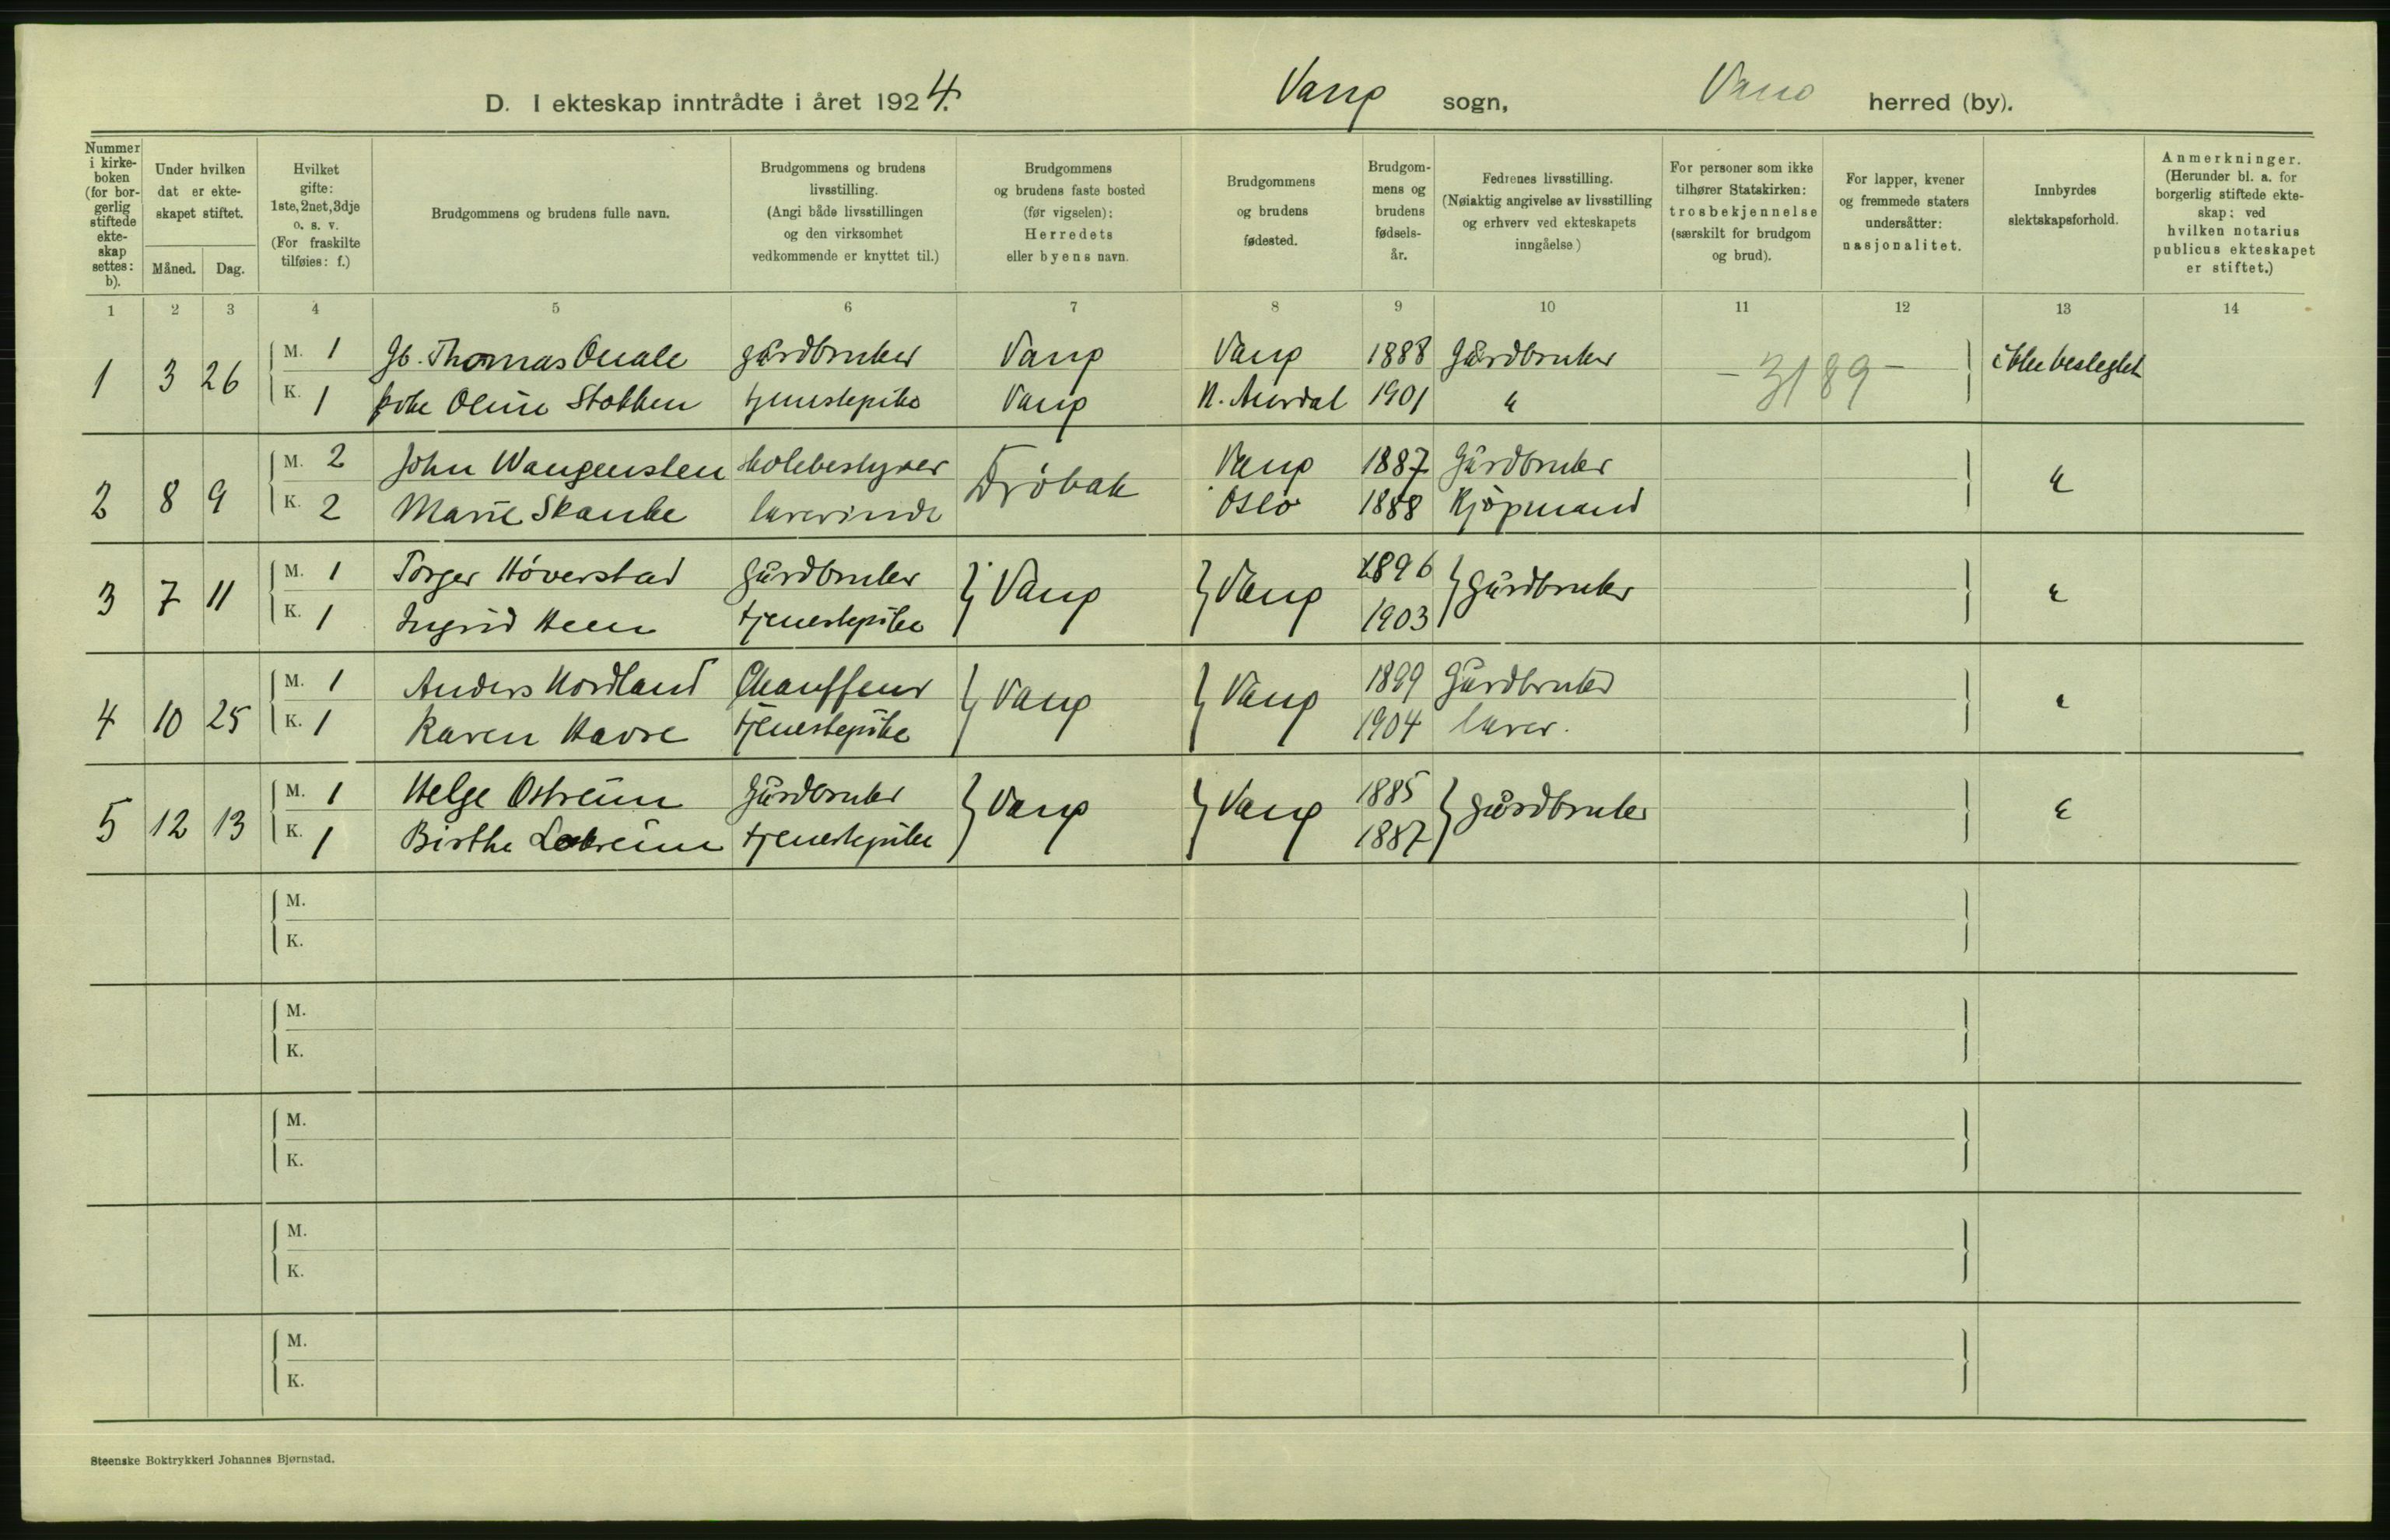 D. I ekteskap inntrådte i året 1924. Vang sogn, Vang herred (by).
Nummer i kirkeboken (for borgerlig stiftede ekteskap settes: b).
Under hvilken dat er ekteskapet stiftet.
Måned. Dag.
Hvilket gifte: 1ste, 2net, 3dje o. s. v. (For fraskilte tilføies: f.)
Brudgommens og brudens fulle navn.
Brudgommens og brudens livsstilling. (Angi både livsstillingen og den virksomhet vedkommende er knyttet til.)
Brudgommens og brudens faste bosted (før vigselen): Herredets eller byens navn.
Brudgommens og brudens fødested.
Brudgommens og brudens fødselsår.
Fedrenes livsstilling. (Nøiaktig angivelse av livsstilling og erhverv ved ekteskapets inngåelse)
For personer som ikke tilhører Statskirken: trosbekjennelse (særskilt for brudgom og brud).
For lapper, kvener og fremmede staters undersåtter: nasjonalitet.
Innbyrdes slektskapsforhold.
Anmerkninger. (Herunder bl. a. for borgerlig stiftede ekteskap: ved hvilken notarius publicus ekteskapet er stiftet.)
1 2 3 4 5 6 7 8 9 10 11 12 13 14
1 3 26 M. 1 Thomas Quale gårdbruker Vang Vang 1888 Gårdbruker - 3189 - ikke beslegtet
K. 1 Oline Stokken tjenestepike Vang N. Aurdal 1901 "
2 8 9 M. 2 John Wangensten skolebestyrer Drøbak Vang 1887 Gårdbruker "
K. 2 Marie Skaube lærerinde Oslo 1888 Kjøpmand
3 7 11 M. 1 Torger Høverstad Gårdbruker } Vang } Vang 1896 } Gårdbruker "
K. 1 Ingrid Heen tjenestepike 1903
4 10 25 M. 1 Anders Nordland Chauffeur } Vang } Vang 1899 Gårdbruker "
K. 1 Karen Havre tjenestepike 1904 lærer.
5 12 13 M. 1 Helge Ostreim Gårdbruker } Vang } Vang 1885 } Gårdbruker "
K. 1 Birthe tjenestepike 1887
M.
K.
M.
K.
M.
K.
M.
K.
M.
K.
Steenske Boktrykkeri Johannes Bjørnstad.